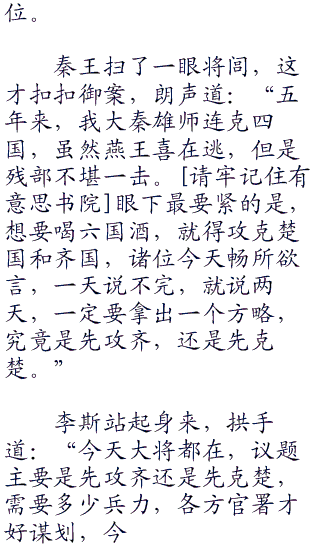 位。
秦王扫了一眼将闾，这
才扣扣御案，朗声道：“五
年来，我大秦雄师连克四
国，虽然燕王喜在逃，但是
残部不堪一击。[请牢记住有
意思书院]眼下最要紧的是，
想要喝六国酒，就得攻克楚
国和齐国，诸位今天畅所欲
言，一天说不完，就说两
天，一定要拿出一个方略，
究竟是先攻齐，还是先克
楚。”
李斯站起身来，拱手
道：“今天大将都在，议题
主要是先攻齐还是先克楚，
需要多少兵力，各方官署才
好谋划，今